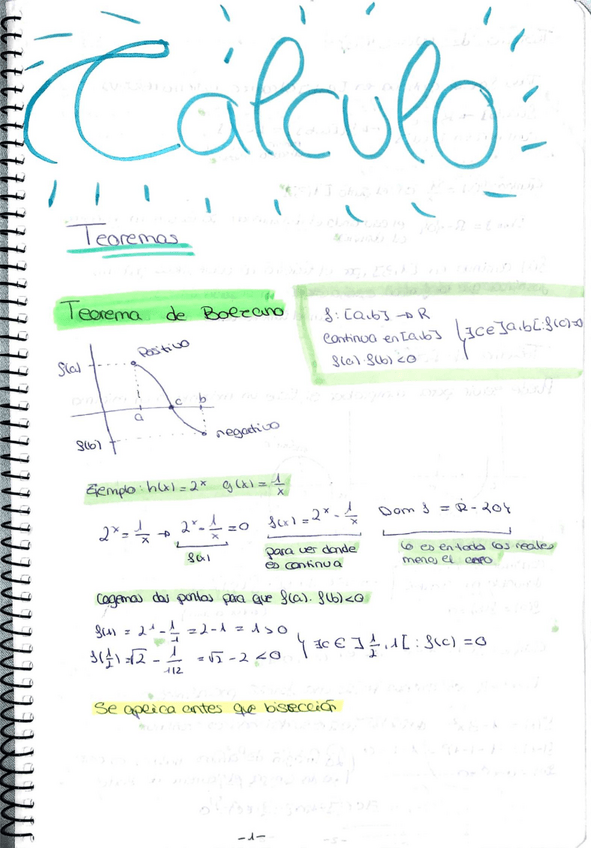 Cálculo
Teoremas
Teorema de Bolzano
f: [a,b] → R
continua en [a,b] } ∃c∈]a,b[: f(c)=0
f(a)·f(b)<0
f(a)
positivo
a
c
b
f(b)
negativo
Ejemplo: h(x) = 2ˣ g(x) = 1/x
2ˣ = 1/x → 2ˣ - 1/x = 0 f(x) = 2ˣ - 1/x Dom f = R - {0}
f(x)
para ver donde es continua
es en todos los reales menos el cero
Cogemos dos puntos para que f(a)·f(b)<0
f(1) = 2¹ - 1/1 = 2-1 = 1 > 0
f(1/2) = √2 - 1/1/2 = √2 - 2 < 0 } ∃c ∈ ]1/2, 1[ : f(c) = 0
Se aplica antes que bisección
-1-